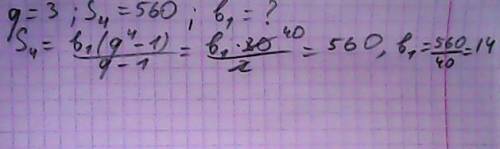 q = 3 ; S₄ = 560 ; b₁ = ?
S₄ = b₁(q⁴ - 1) / q - 1 = b₁ · 80 40 / 2 = 560, b₁ = 560 / 40 = 14